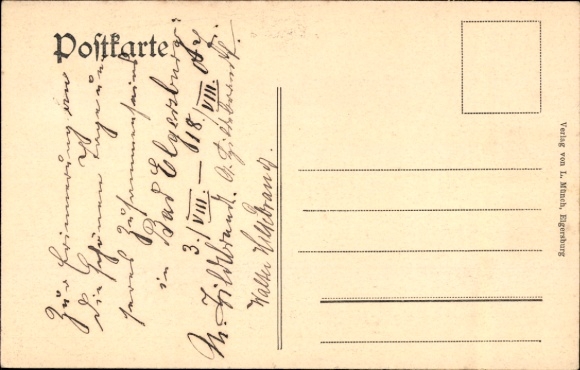 Postkarte
Zur Erinnerung an
die schönen Tage un-
seres Zusammenseins
in Bad Elgersburg
3./VIII. – 18./VIII. 04.
M. Hildebrand.
Walter Hildebrand.
Verlag von L. Münch, Elgersburg